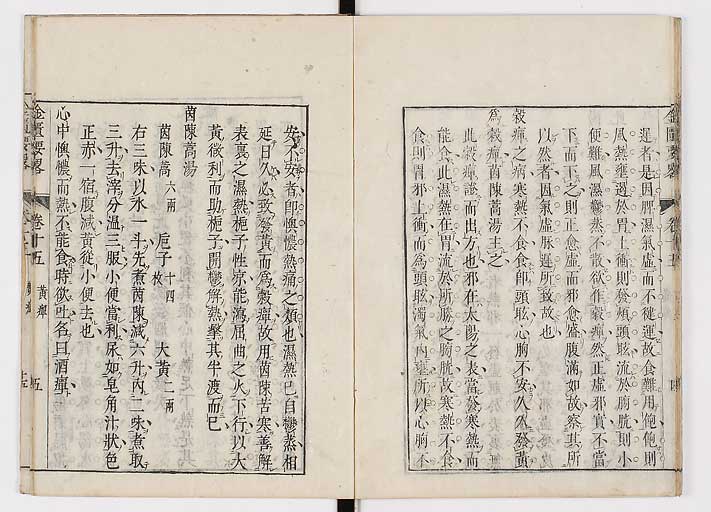 遲者是因脾濕氣虛而不健運故食難用飽飽則
風熱壅遏於胃上衝則發煩頭眩流於膀胱則小
便難風濕鬱蒸不散欲作穀癉然正虛邪實不當
下而下之則正愈虛而邪愈盛腹滿如故察其所
以然者因氣虛脉遲所致故也
穀癉之病寒熱不食食即頭眩心胸不安久久發黃
為穀癉茵陳蒿湯主之
此穀癉證而出方也邪在太陽之表當發寒熱而
能食此濕熱在胃流於所勝之膀胱故寒熱不食
食則胃邪上衝而為頭眩濁氣內壅所以心胸不
金匱要畧
安不安者即懊憹熱痛之煩也濕熱已自鬱蒸相
延日久必致發黃而為穀癉故用茵陳苦寒善解
表裏之濕熱梔子性凉能瀉屈曲之火下行以大
黃微利而助梔子開鬱解熱擊其半渡而已
茵陳蒿湯
茵陳蒿六兩 梔子十四枚 大黃二兩
右三味以水一斗先煮茵陳減六升內二味煮取
三升去滓分溫三服小便當利尿如皂角汁狀色
正赤一宿腹減黃從小便去也
心中懊憹而熱不能食時欲吐名曰酒癉
金匱要畧 卷十五 黃癉 五